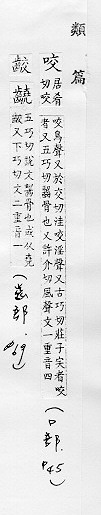 類篇
咬 居肴切咬咬鳥聲又於交切洼咬淫聲又古巧切莊子実者咬
者又五巧切齧骨也又許介切風聲文一重音四
(口部.P45)
齩 𪘎 五巧切說文齧骨也或从堯
齩又下巧切文二重音一
(齒部.P69)